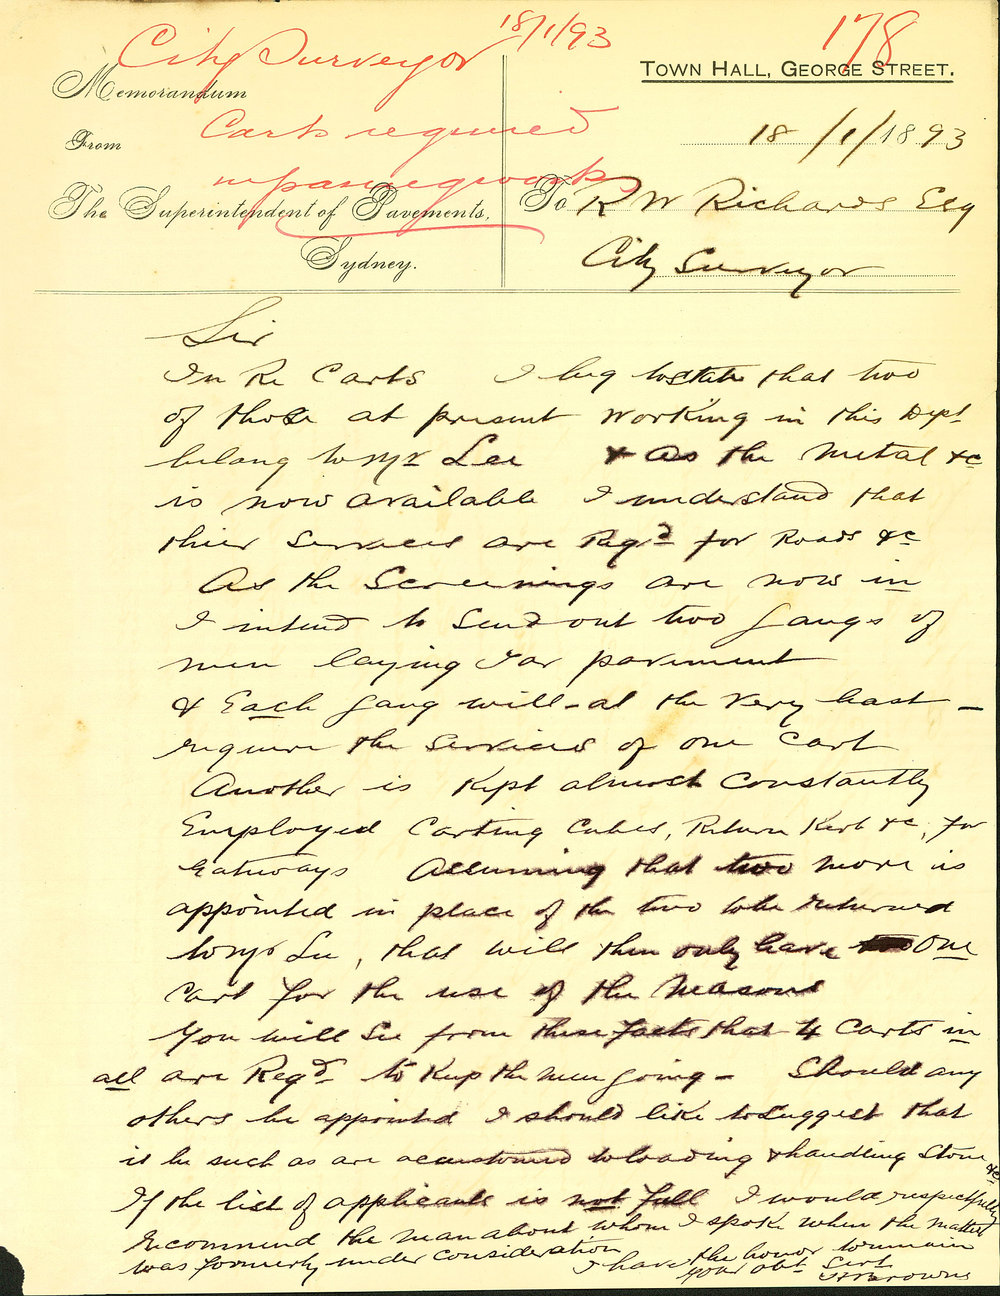 City Surveyor 18/1/93
178
Carts required
in paving work
Memorandum
From
The Superintendent of Pavements,
Sydney.
TOWN HALL, GEORGE STREET.
18/1/1893
To R W Richards Esq
City Surveyor
Sir
In Re Carts I beg to state that two
of those at present working in this Dept
belong to Mr Lee & as the Metal &c
is now available I understand that
thier Services are Reqd for Roads &c
As the Screenings are now in
I intend to Send out two Gangs of
men laying Tar pavement
& Each Gang will - at the very least -
require the Services of one Cart
Another is Kept almost Constantly
Employed Carting Cubes, Return Kerb &c, for
Gateways Assuming that two more is
appointed in place of the two to be returned
to Mr Lee, that will then only leave One
Cart for the use of the Masons
You will See from these facts that 4 Carts in
all are Reqd to Keep the men going - Should any
others be appointed I should like to Suggest that
it be such as are accustomed to loading & handling Stone &c
If the list of applicants is not full I would respectfully
recommend the man about whom I spoke when the matter
was formerly under consideration
I have the honor to remain
Your obt Servt